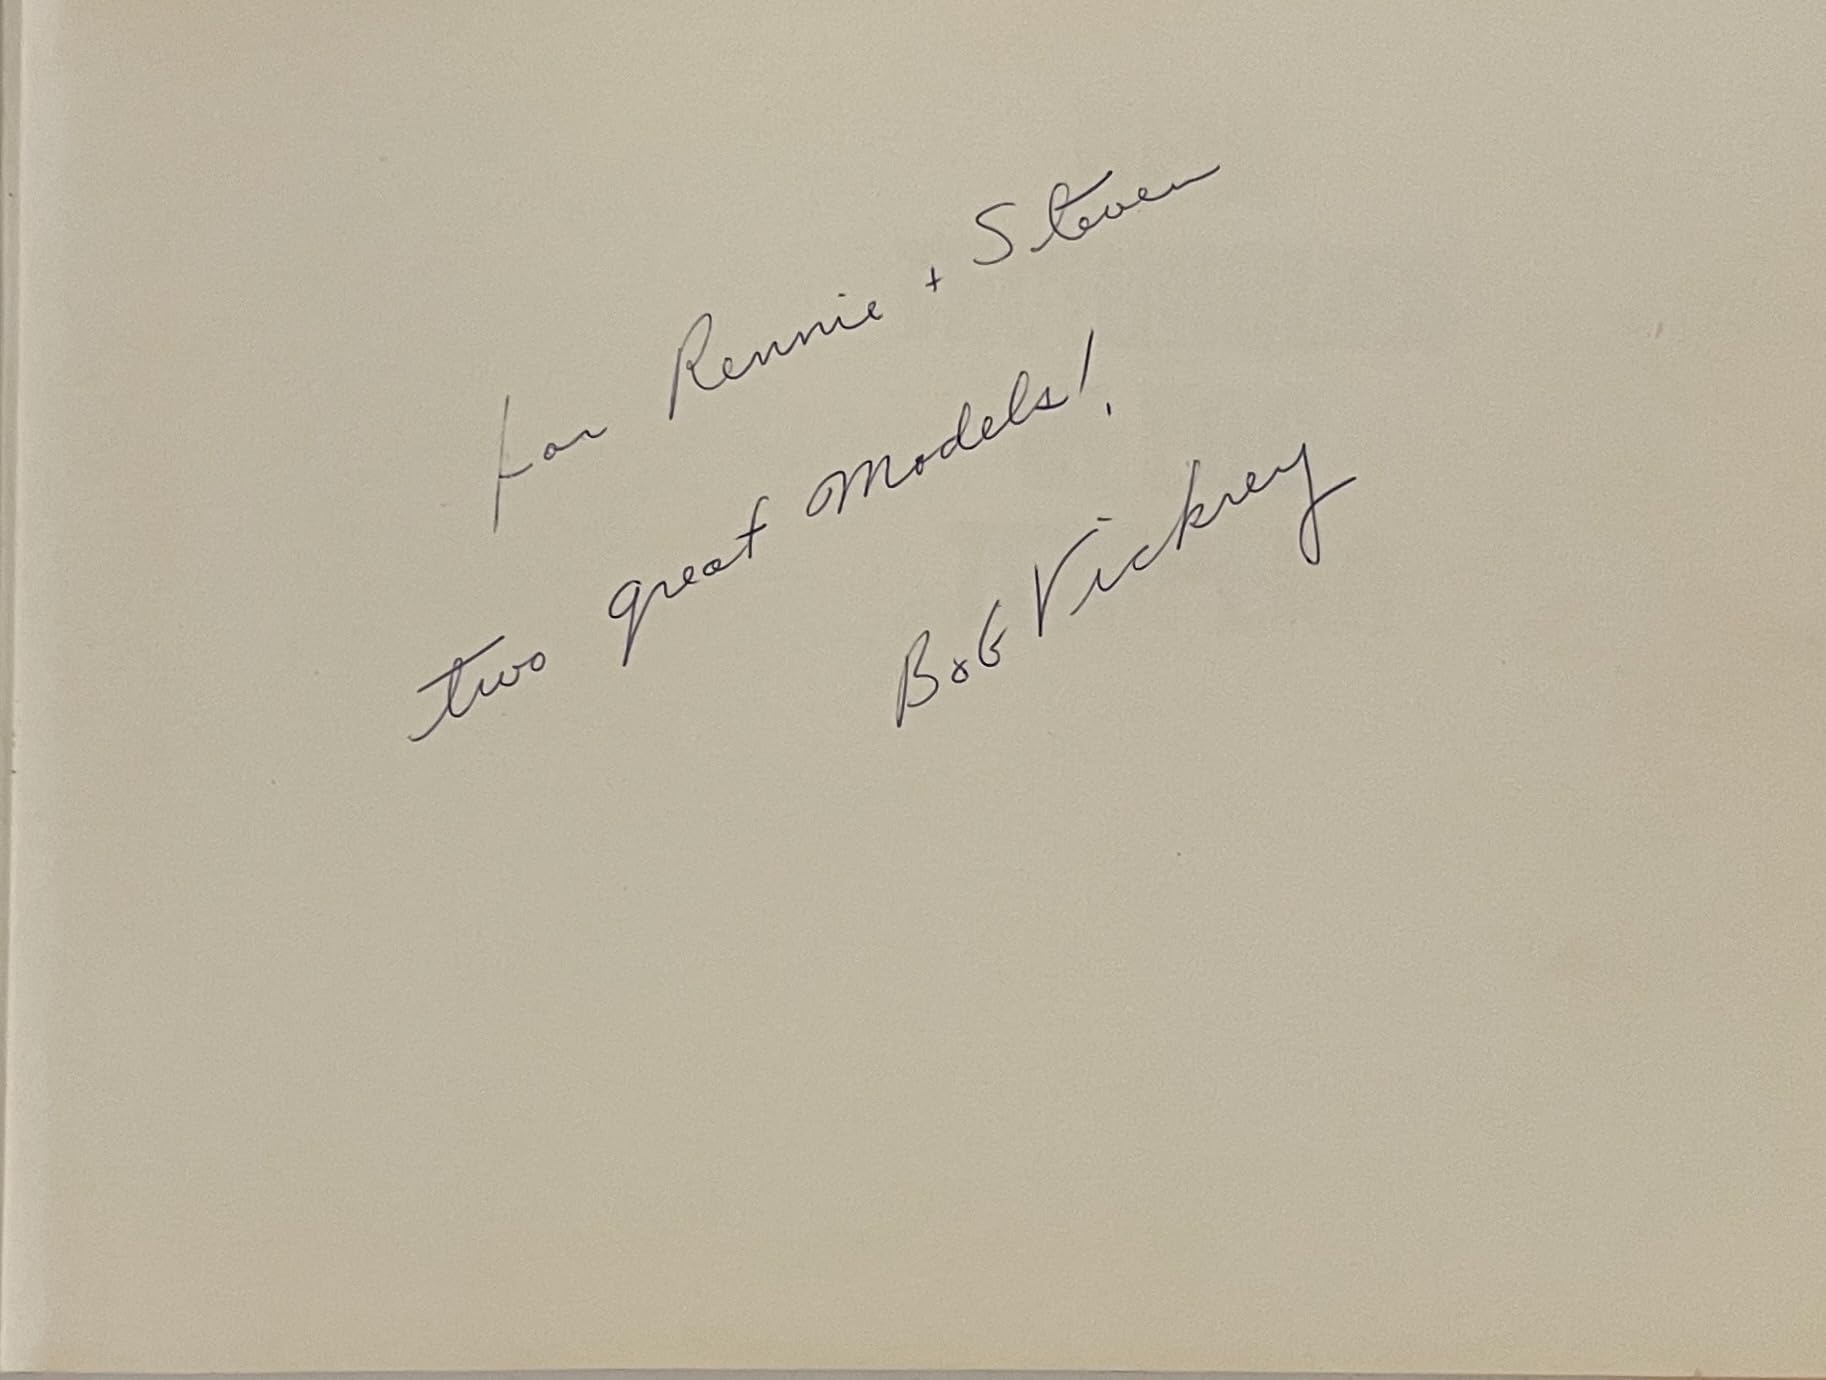 for Rennie + Steven
two great Models!
Bob Vickrey